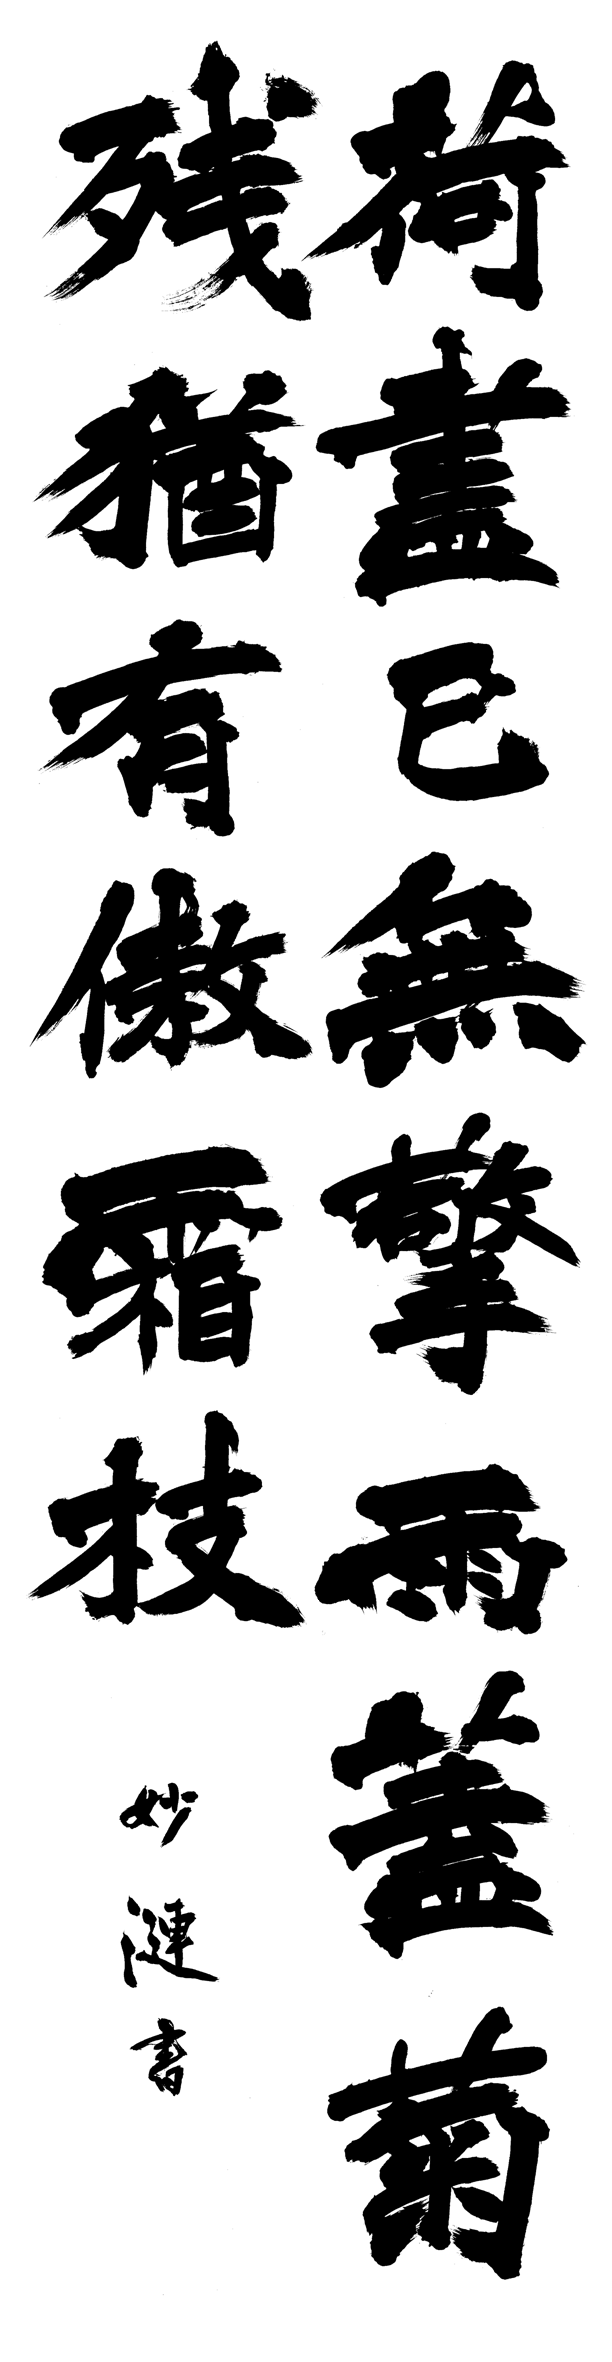 荷盡已無擎雨蓋菊
残猶有傲霜枝
妙漣書